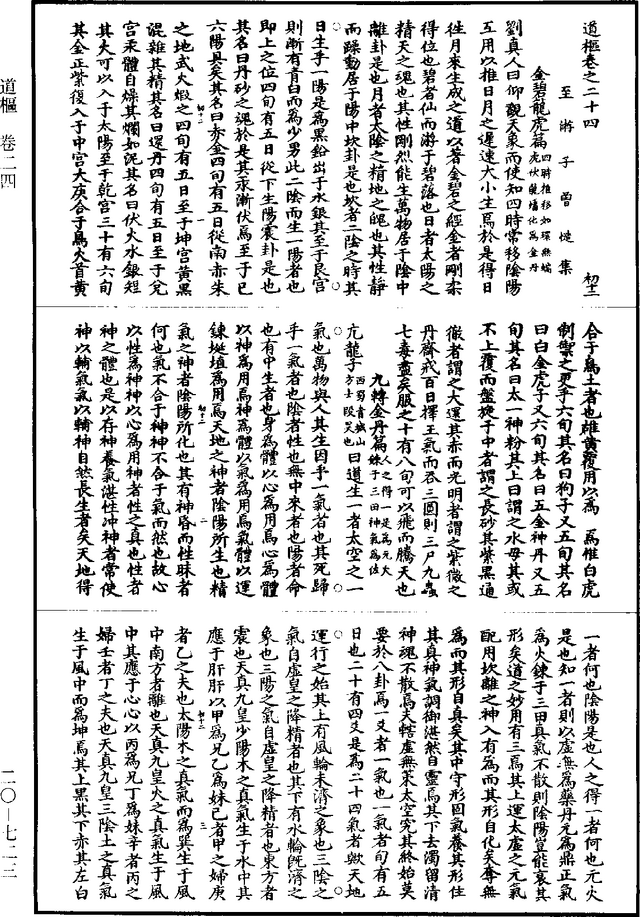 道樞卷之二十四
至游子曾慥集 初三
金碧龍虎篇 四時推移如環無端龍虎旋墻化爲金丹
劉真人曰仰觀天象而使知四時常移陰陽
互用以推日月之遲速大小生焉於是得日
徃月來生成之道以著金碧之經金者剛柔
得位也碧者仙而游于碧落也日者太陽之
精天之魂也其性剛烈能生萬物居于陰中
離卦是也月者太陰之精地之魄也其性靜
而躁動居于陽中坎卦是也坎者二陰之時其
日生乎一陽是爲黒鉛出于水銀其至于艮宫
則漸有青白而爲少男此二陰而生一陽者也
即上之位四旬有五日從下生陽震卦是也
其名曰丹砂之魂於是其汞漸伏焉至于巳
六陽具矣其名曰赤金四旬有五日從南赤朱
之地武火煅之四旬有五日至于坤宫黄黒
混雜其精其名曰還丹四旬有五日至于兌
宫汞體自燥其爛如泥其名曰伏火水銀短
其大可以入于太陽至于乾宫三十有六旬
其金正紫復入于中宫大庚合于烏火首黄
合于烏土者也雌黄覆用以爲 爲惟白虎
制禦之更乎六旬其名曰狗子又五旬其名
曰白金虎子又六旬其名曰五金神丹又五
旬其名曰太一神粉其上曰謂之水母其或
不上覆而盤旋于中者謂之長砂其紫黒通
徹者謂之大還其赤而光明者謂之紫微之
丹齋戒百日擇王氣而吞三圓則三尸九蟲
七毒盡矣服之十有八旬可以飛而騰天也
九轉金丹篇 人之得一是爲元火妹于三田神氣爲佐
亢龍子 西蜀青城山方士段昊也 曰道生一者太空之一
氣也萬物與人其生因乎一氣者也其死歸
乎一氣者也陰者性也無中來者也陽者命
也有中生者也身爲體以心爲用爲心爲體
以神爲用爲神爲體以氣爲用爲氣體以運
鍊埏埴爲用爲天地之神者陰陽所生也精
氣之神者陰陽所化也其有神昏而性昧者
何也氣不合于神神不合于氣而然也故心
以性爲神神以心爲用神者性之真也性者
神之體也是以存神養氣湛性冲神者常使
神以輔氣氣以輔神自然長生者矣天地得
一者何也陰陽是也人之得一者何也元火
是也知一者則以虚無爲藥丹元爲鼎正氣
爲火鍊于三田真氣不散則陰陽豈能衰其
形矣道之妙用有三焉其上運太虚之元氣
配用坎離之神入有爲而其形自化矣奪無
爲而其形自真矣其中守形固氣養其形住
其真神氣調御湛然自靈焉其下去濁留清
神魂不散焉夫轄虚無策太空究其終始莫
要於八卦焉一爻者一氣也一氣者旬有五
日也二十有四爻是爲二十四氣者歟天地
運行之始其上有風輪未濟之象也三陰之
氣自虚皇之降精者也其下有水輪旣濟之
象也三陽之氣自虚皇之降精者也東方者
震也天真九皇少陽木之真氣生于水中其
應于肝肝以甲爲兄乙爲妹己者甲之婦庚
者乙之夫也太陽木之真氣而爲巽生于風
中南方者離也天真九皇火之真氣生于風
中其應于心心以丙爲兄丁爲妹辛者丙之
婦壬者丁之夫也天真九皇三陰土之真氣
生于風中而爲坤焉其上黒其下赤其左白
道樞 卷二四
二〇-七二三